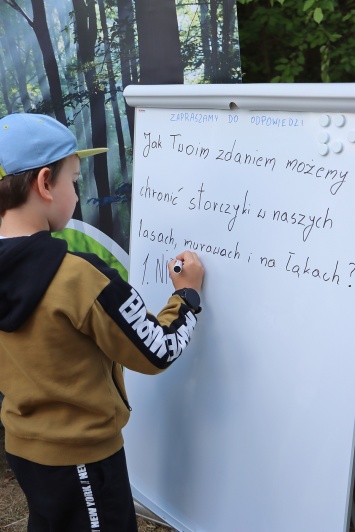 ZAPRASZAMY DO ODPOWIEDZI
Jak Twoim zdaniem możemy
chronić storczyki w naszych
lasach, murawach i na łąkach?
1. NI
NEW YORK NEW